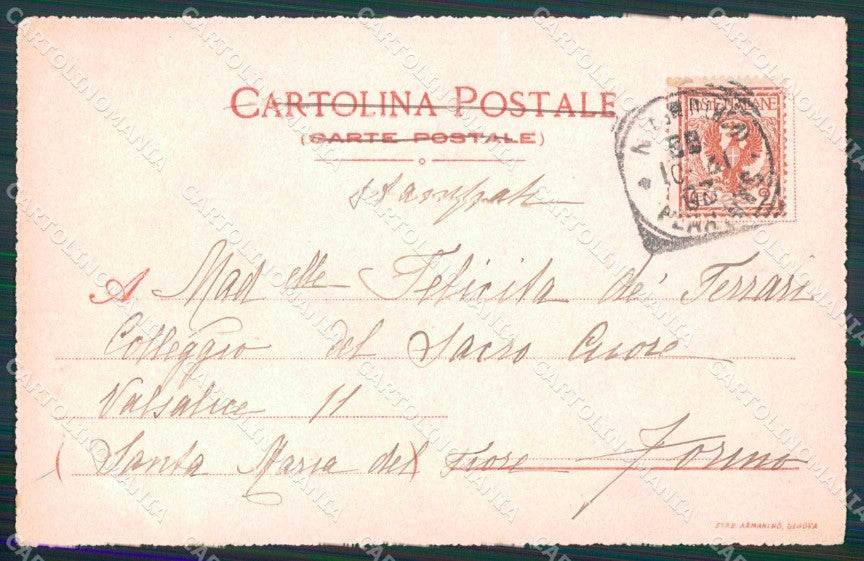 CARTOLINA POSTALE
(CARTE POSTALE)
POSTE ITALIANE
Stampati
A Mad elle Felicita de' Ferrari
Colleggio del Sacro Cuore
Valsalice 11
(Santa Maria del Fiore Torino
STAB. ARMANINO, GENOVA
CARTOLINOMANIA